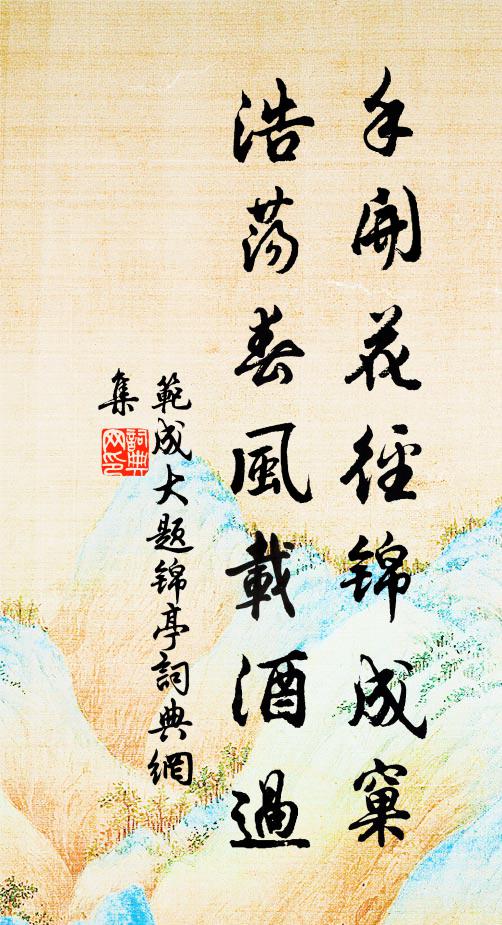 手開花徑錦成窠
浩蕩春風載酒過
範成大題錦亭詞典網
集
詞典網印